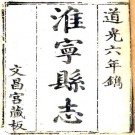 道光六年鐫
淮寧縣志
文昌宮藏板